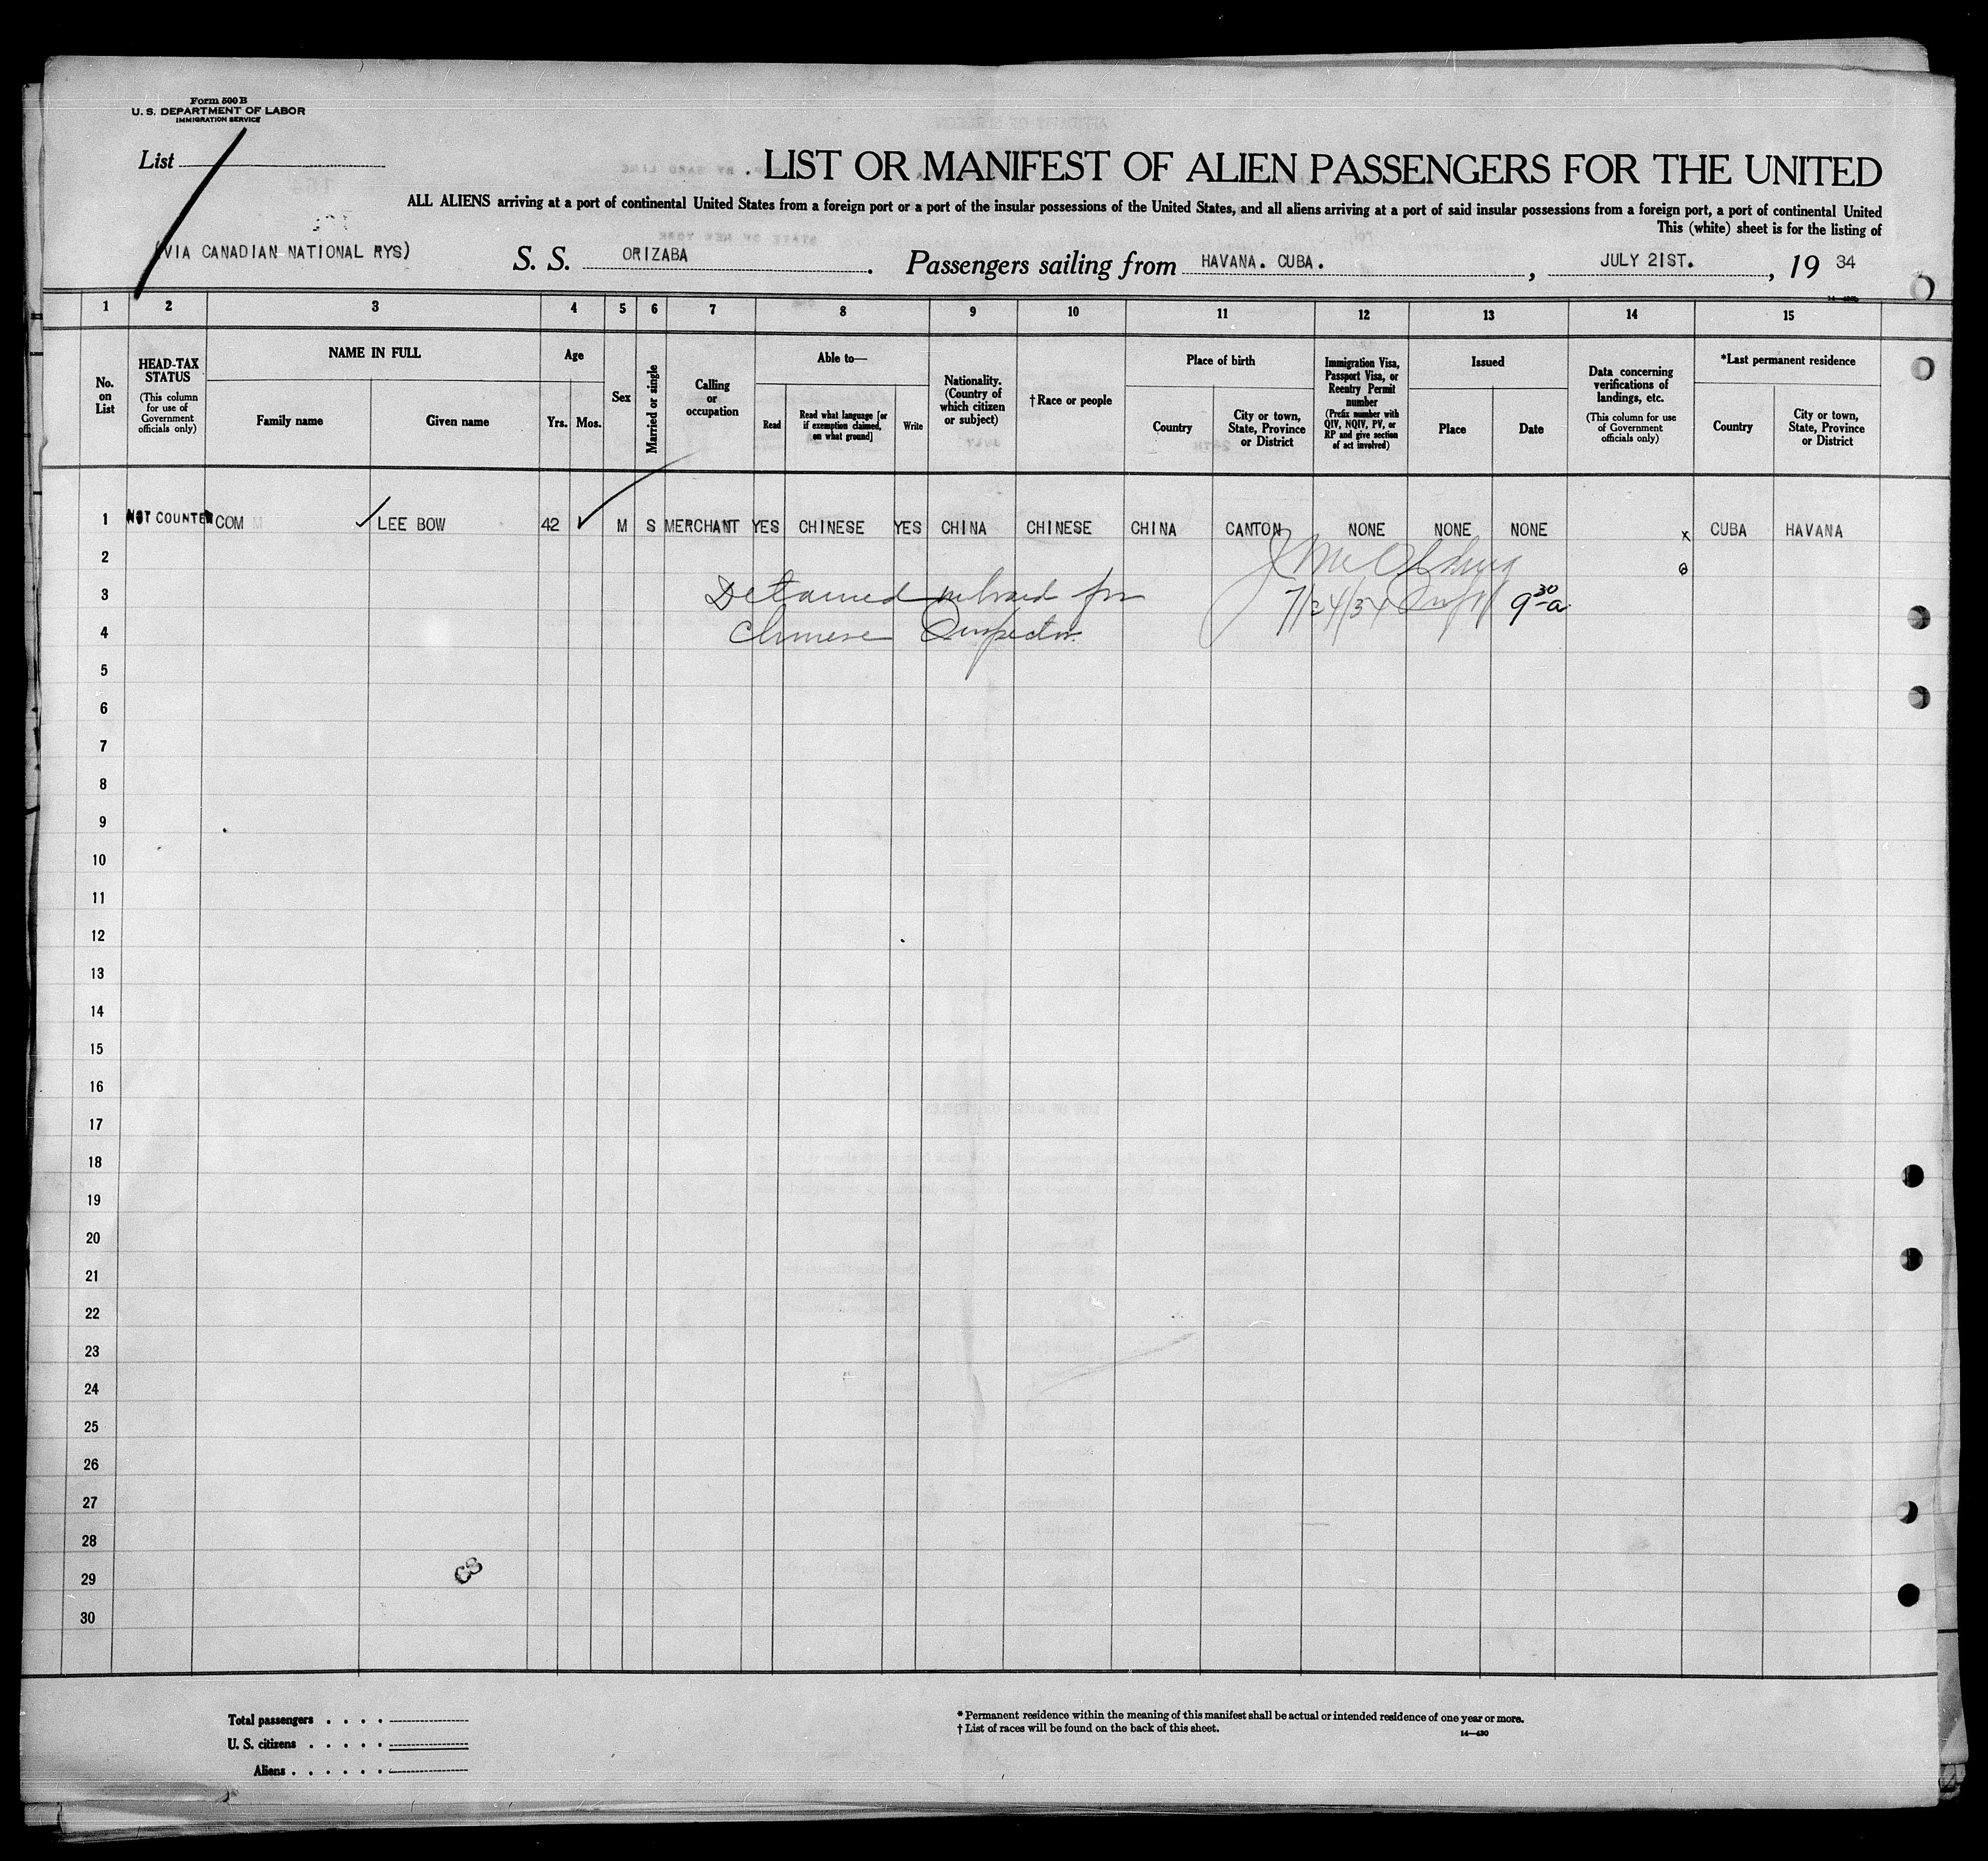 Form 500 B
U. S. DEPARTMENT OF LABOR
IMMIGRATION SERVICE
List
LIST OR MANIFEST OF ALIEN PASSENGERS FOR THE UNITED
ALL ALIENS arriving at a port of continental United States from a foreign port or a port of the insular possessions of the United States, and all aliens arriving at a port of said insular possessions from a foreign port, a port of continental United
This (white) sheet is for the listing of
(VIA CANADIAN NATIONAL RYS) S. S. ORIZABA. Passengers sailing from HAVANA. CUBA. , JULY 21ST. , 19 34
1 2 3 4 5 6 7 8 9 10 11 12 13 14 15
No. on List
HEAD-TAX STATUS
(This column for use of Government officials only)
NAME IN FULL
Family name
Given name
Age
Yrs. Mos.
Sex
Married or single
Calling or occupation
Able to—
Read
Read what language [or if exemption claimed, on what ground]
Write
Nationality. (Country of which citizen or subject)
†Race or people
Place of birth
Country
City or town, State, Province or District
Immigration Visa, Passport Visa, or Reentry Permit number
(Prefix number with QIV, NQIV, PV, or RP and give section of act involved)
Issued
Place
Date
Data concerning verifications of landings, etc.
(This column for use of Government officials only)
*Last permanent residence
Country
City or town, State, Province or District
1 NOT COUNTED COM LEE BOW 42 M S MERCHANT YES CHINESE YES CHINA CHINESE CHINA CANTON NONE NONE NONE x CUBA HAVANA
2
3 Detained onboard for 7/24/34 9 30 a
4 Chinese Inspector
5
6
7
8
9
10
11
12
13
14
15
16
17
18
19
20
21
22
23
24
25
26
27
28
29
30
Total passengers . . . .
U. S. citizens . . . . .
Aliens . . . . . .
* Permanent residence within the meaning of this manifest shall be actual or intended residence of one year or more.
† List of races will be found on the back of this sheet.
14—430